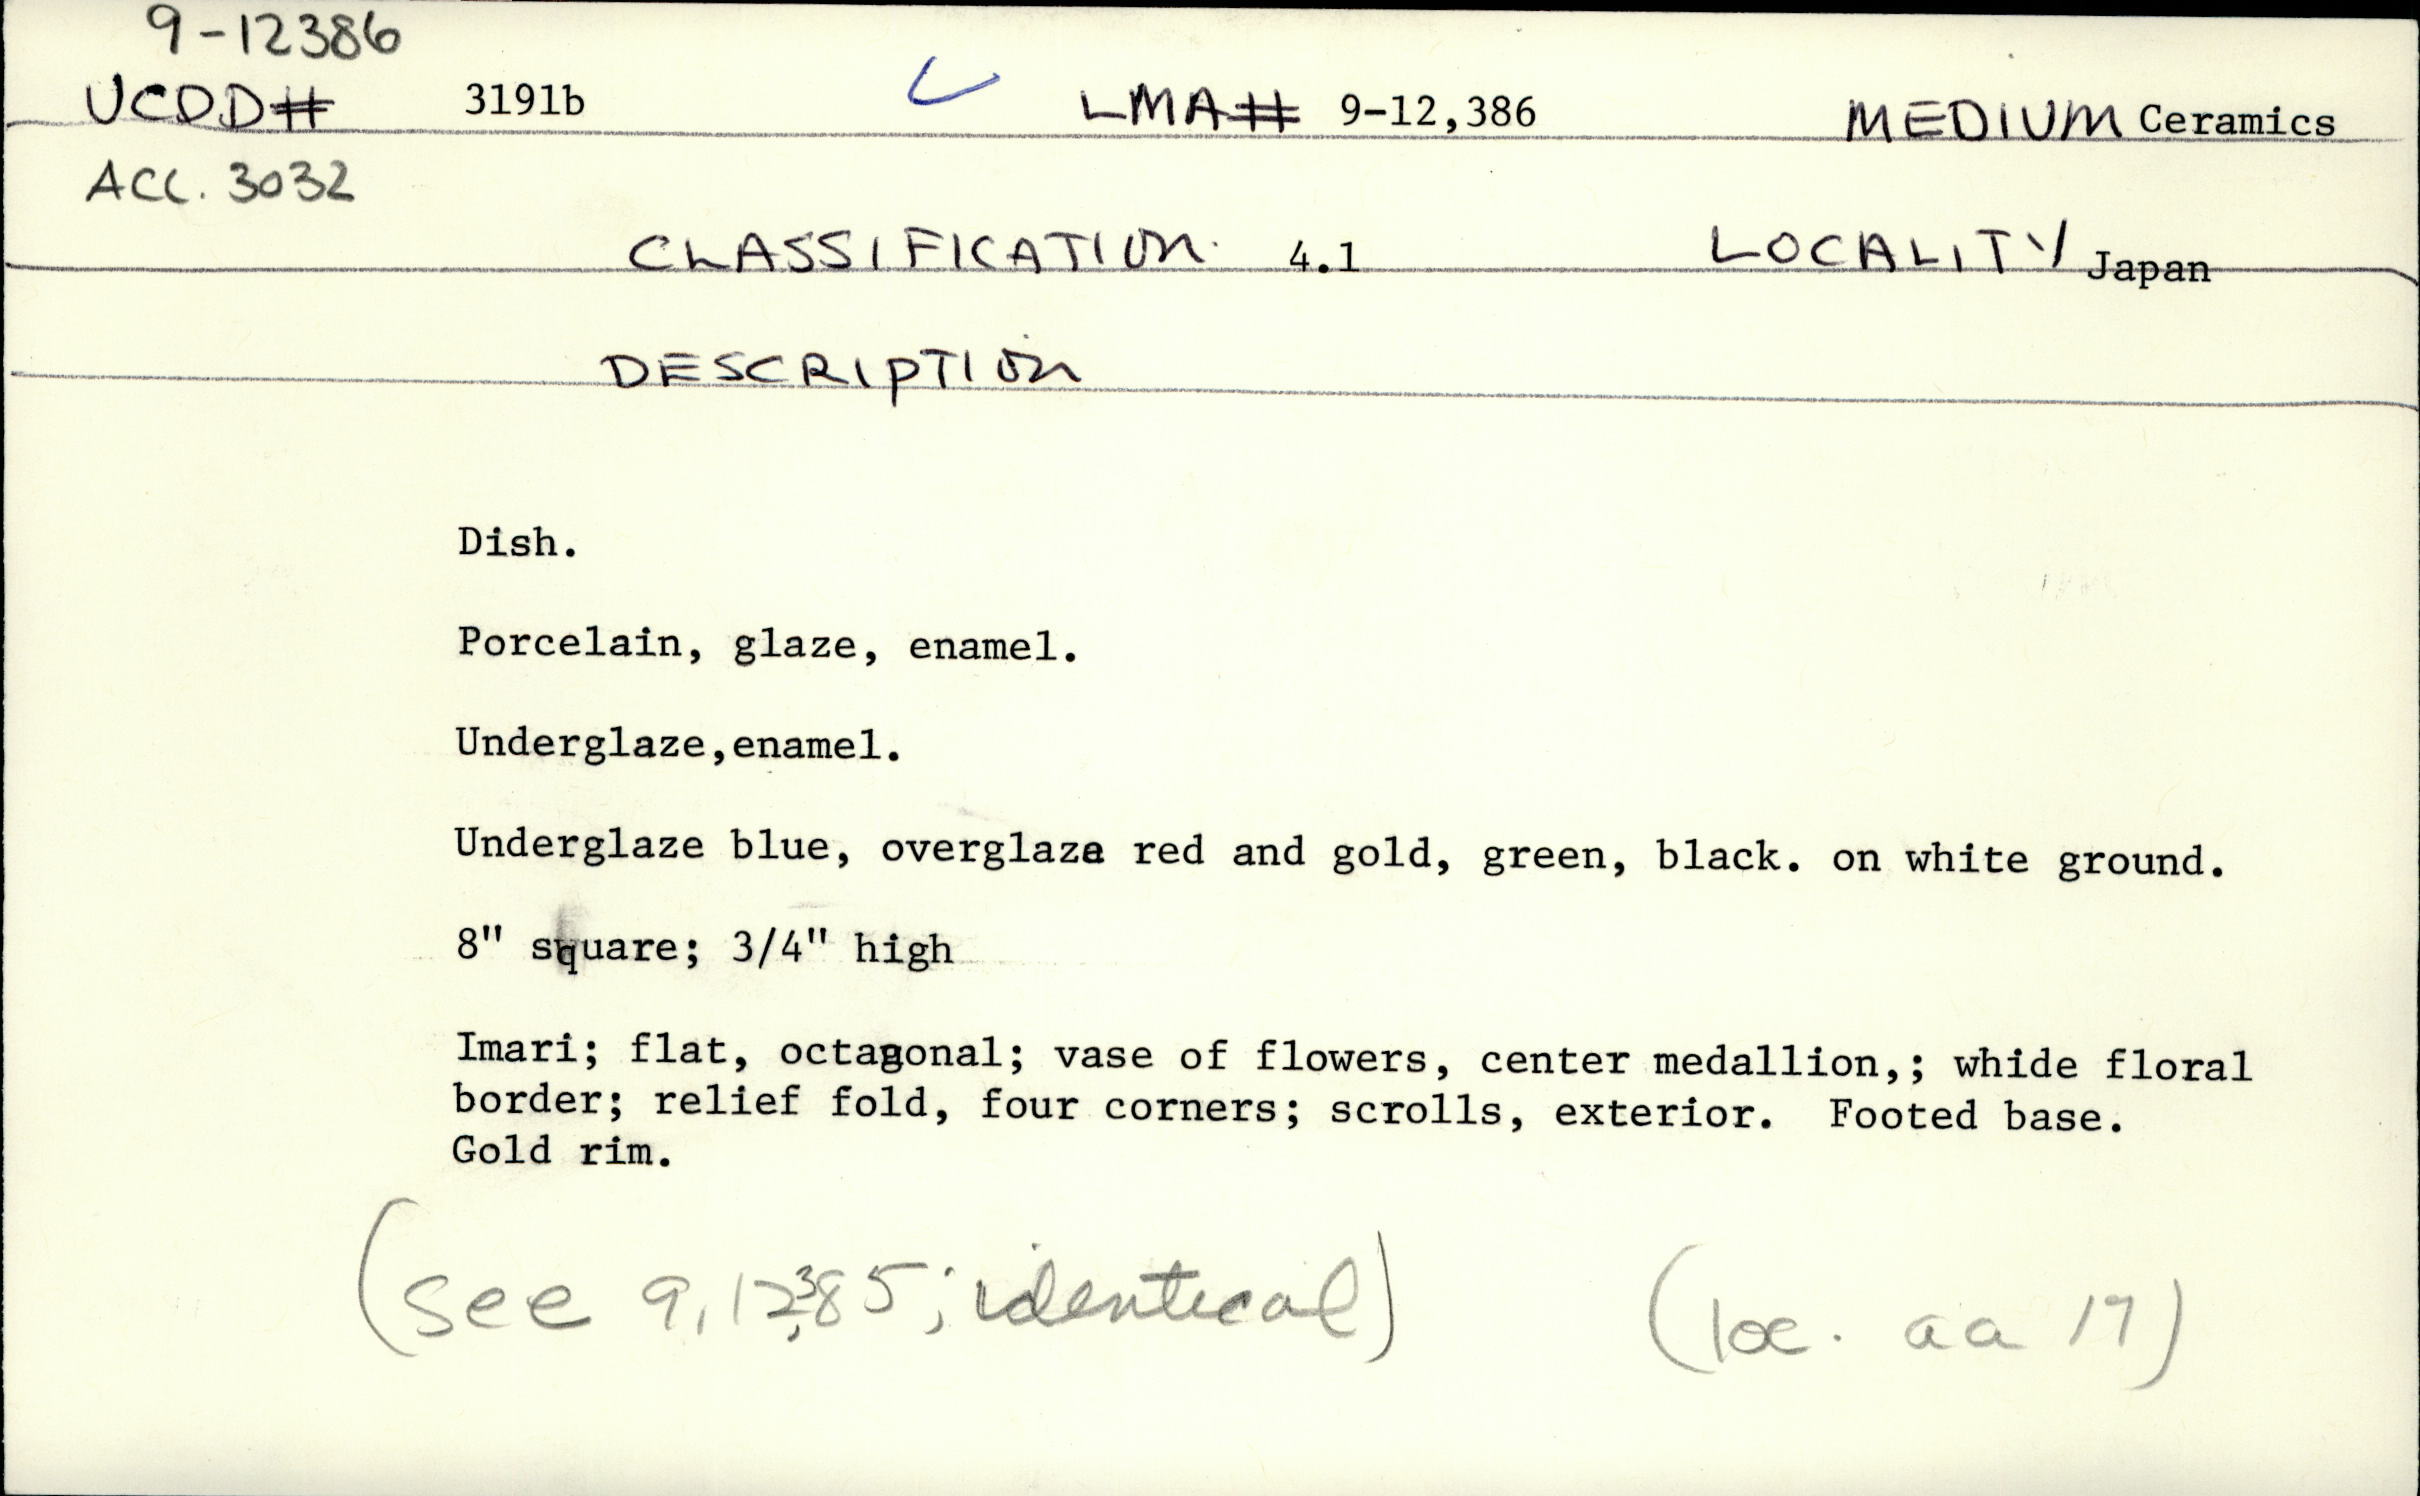 9-12386
UCDD# 3191b LMA# 9-12,386 MEDIUM Ceramics
ACC. 3032
CLASSIFICATION 4.1 LOCALITY Japan
DESCRIPTION
Dish.
Porcelain, glaze, enamel.
Underglaze,enamel.
Underglaze blue, overglaze red and gold, green, black. on white ground.
8" square; 3/4" high
Imari; flat, octagonal; vase of flowers, center medallion,; whide floral
border; relief fold, four corners; scrolls, exterior. Footed base.
Gold rim.
(see 9,12,385; identical) (loc. aa 17)